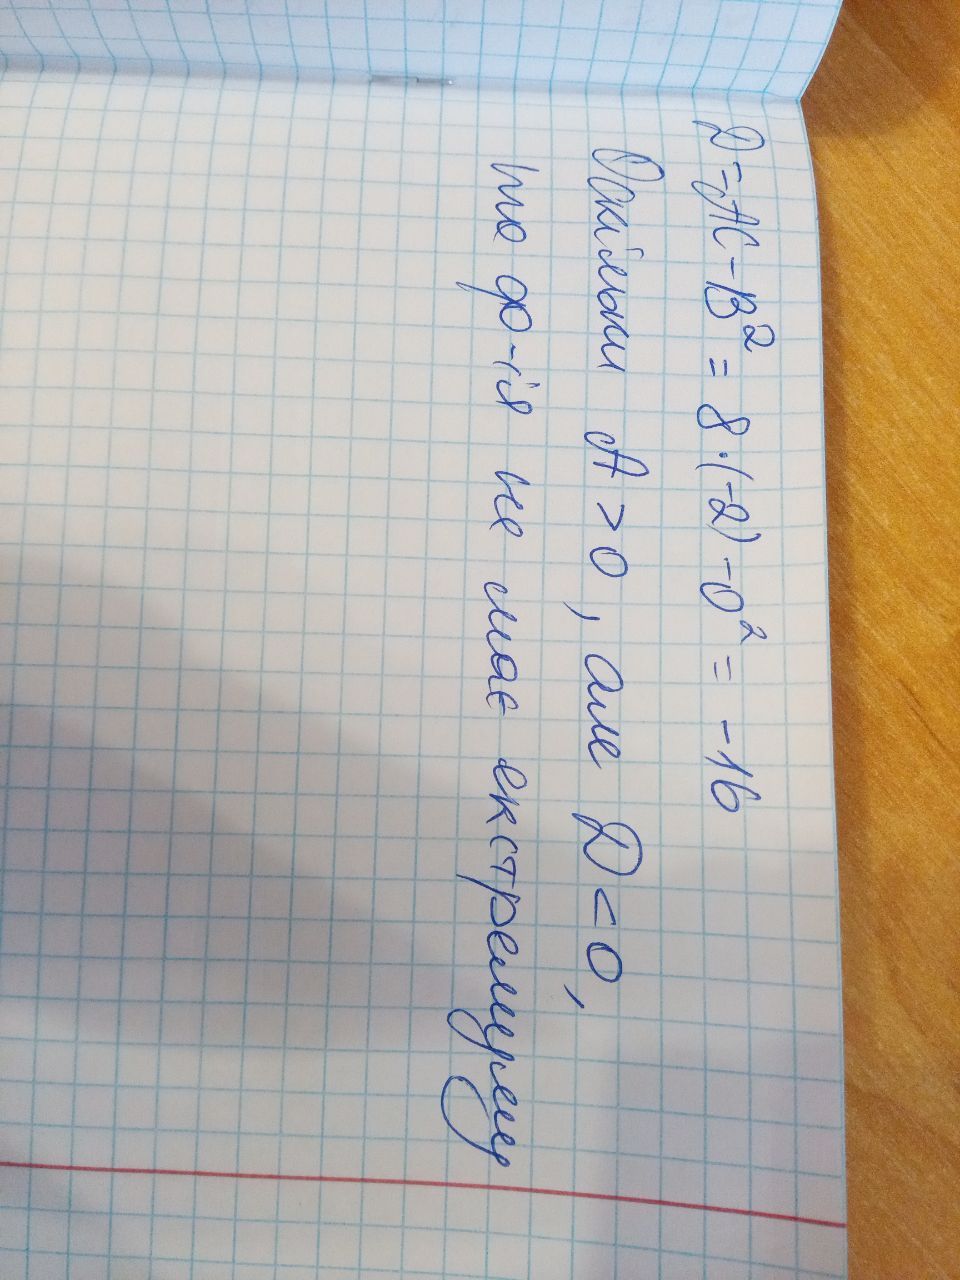 D = AC - B² = 8 · (-2) - 0² = -16
Оскільки A > 0, але D < 0,
то ф-ія не має екстремуму